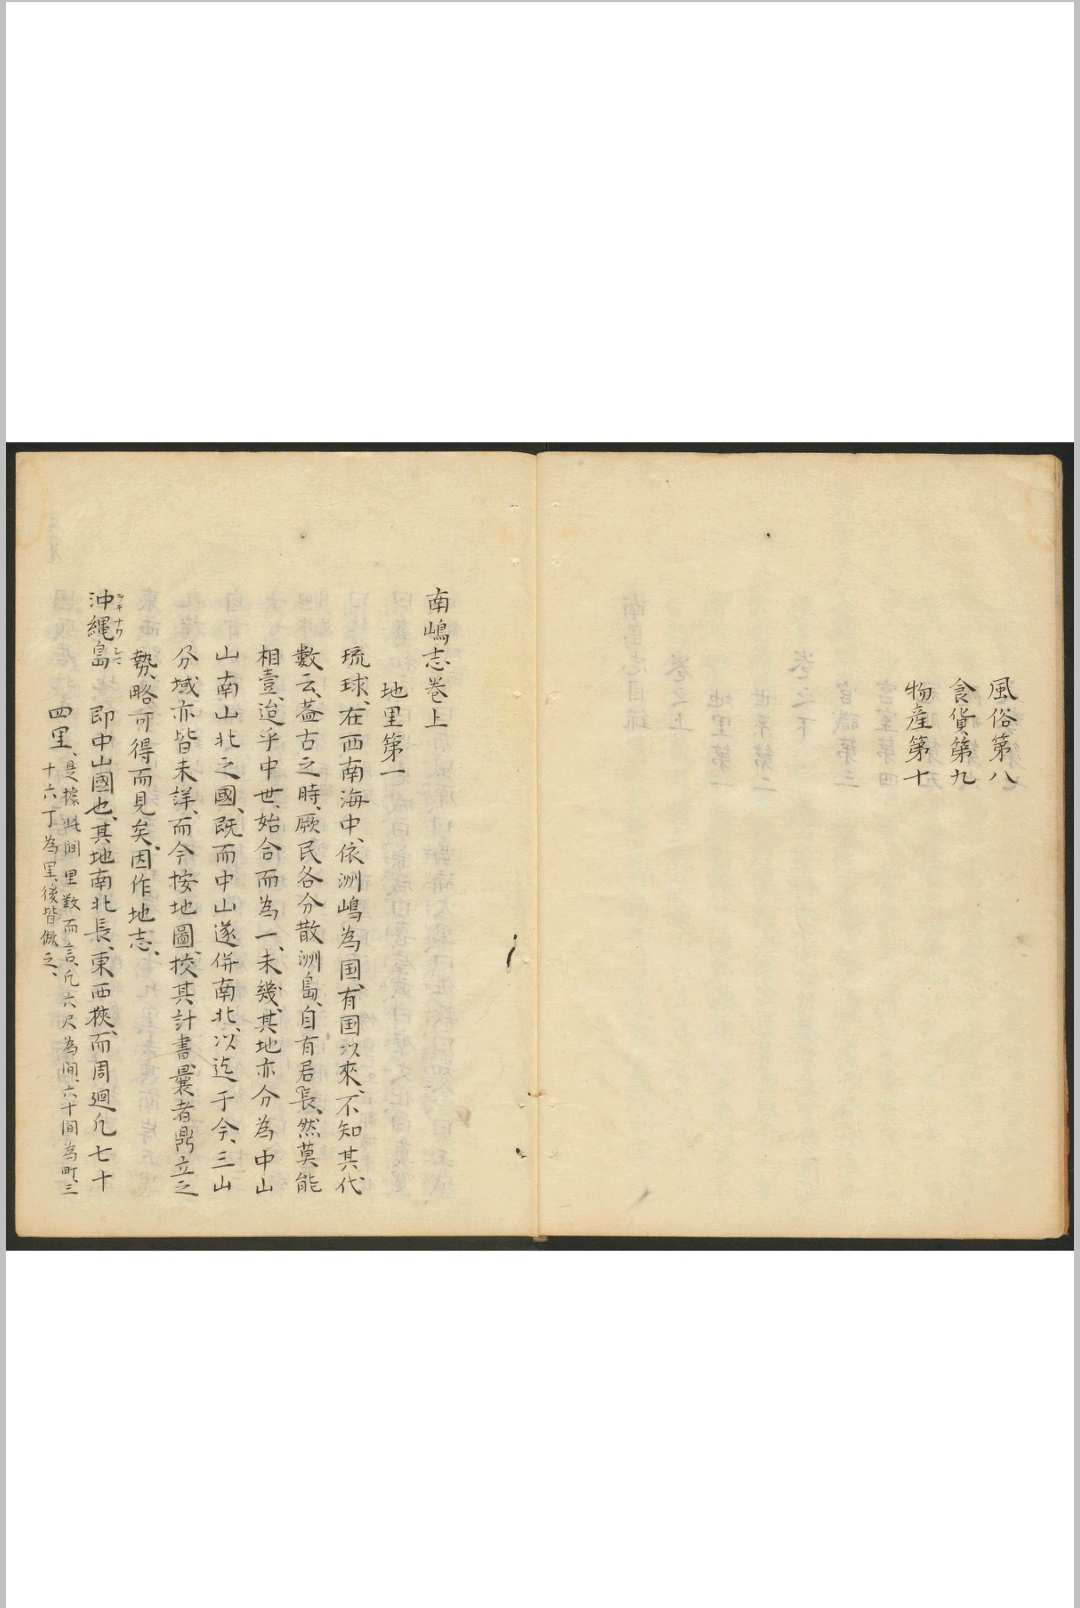 風俗第八
食貨第九
物產第十
南嶋志卷上
地里第一
琉球、在西南海中、依洲嶋為国、有国以來、不知其代
數云、蓋古之時、厥民各分散洲島、自有君長、然莫能
相壹、迨乎中世、始合而為一、未幾、其地亦分為中山
山南山北之國、既而中山遂併南北、以迄于今、三山
分域、亦皆未詳、而今按地圖、挍其計書、曩者鼎立之
勢、略可得而見矣、因作地志、
沖縄島 即中山國也、其地南北長、東西狹、而周廻凡七十
四里、是據此間里數而言、凡六尺為間、六十間為町、三
十六丁為里、後皆倣之、